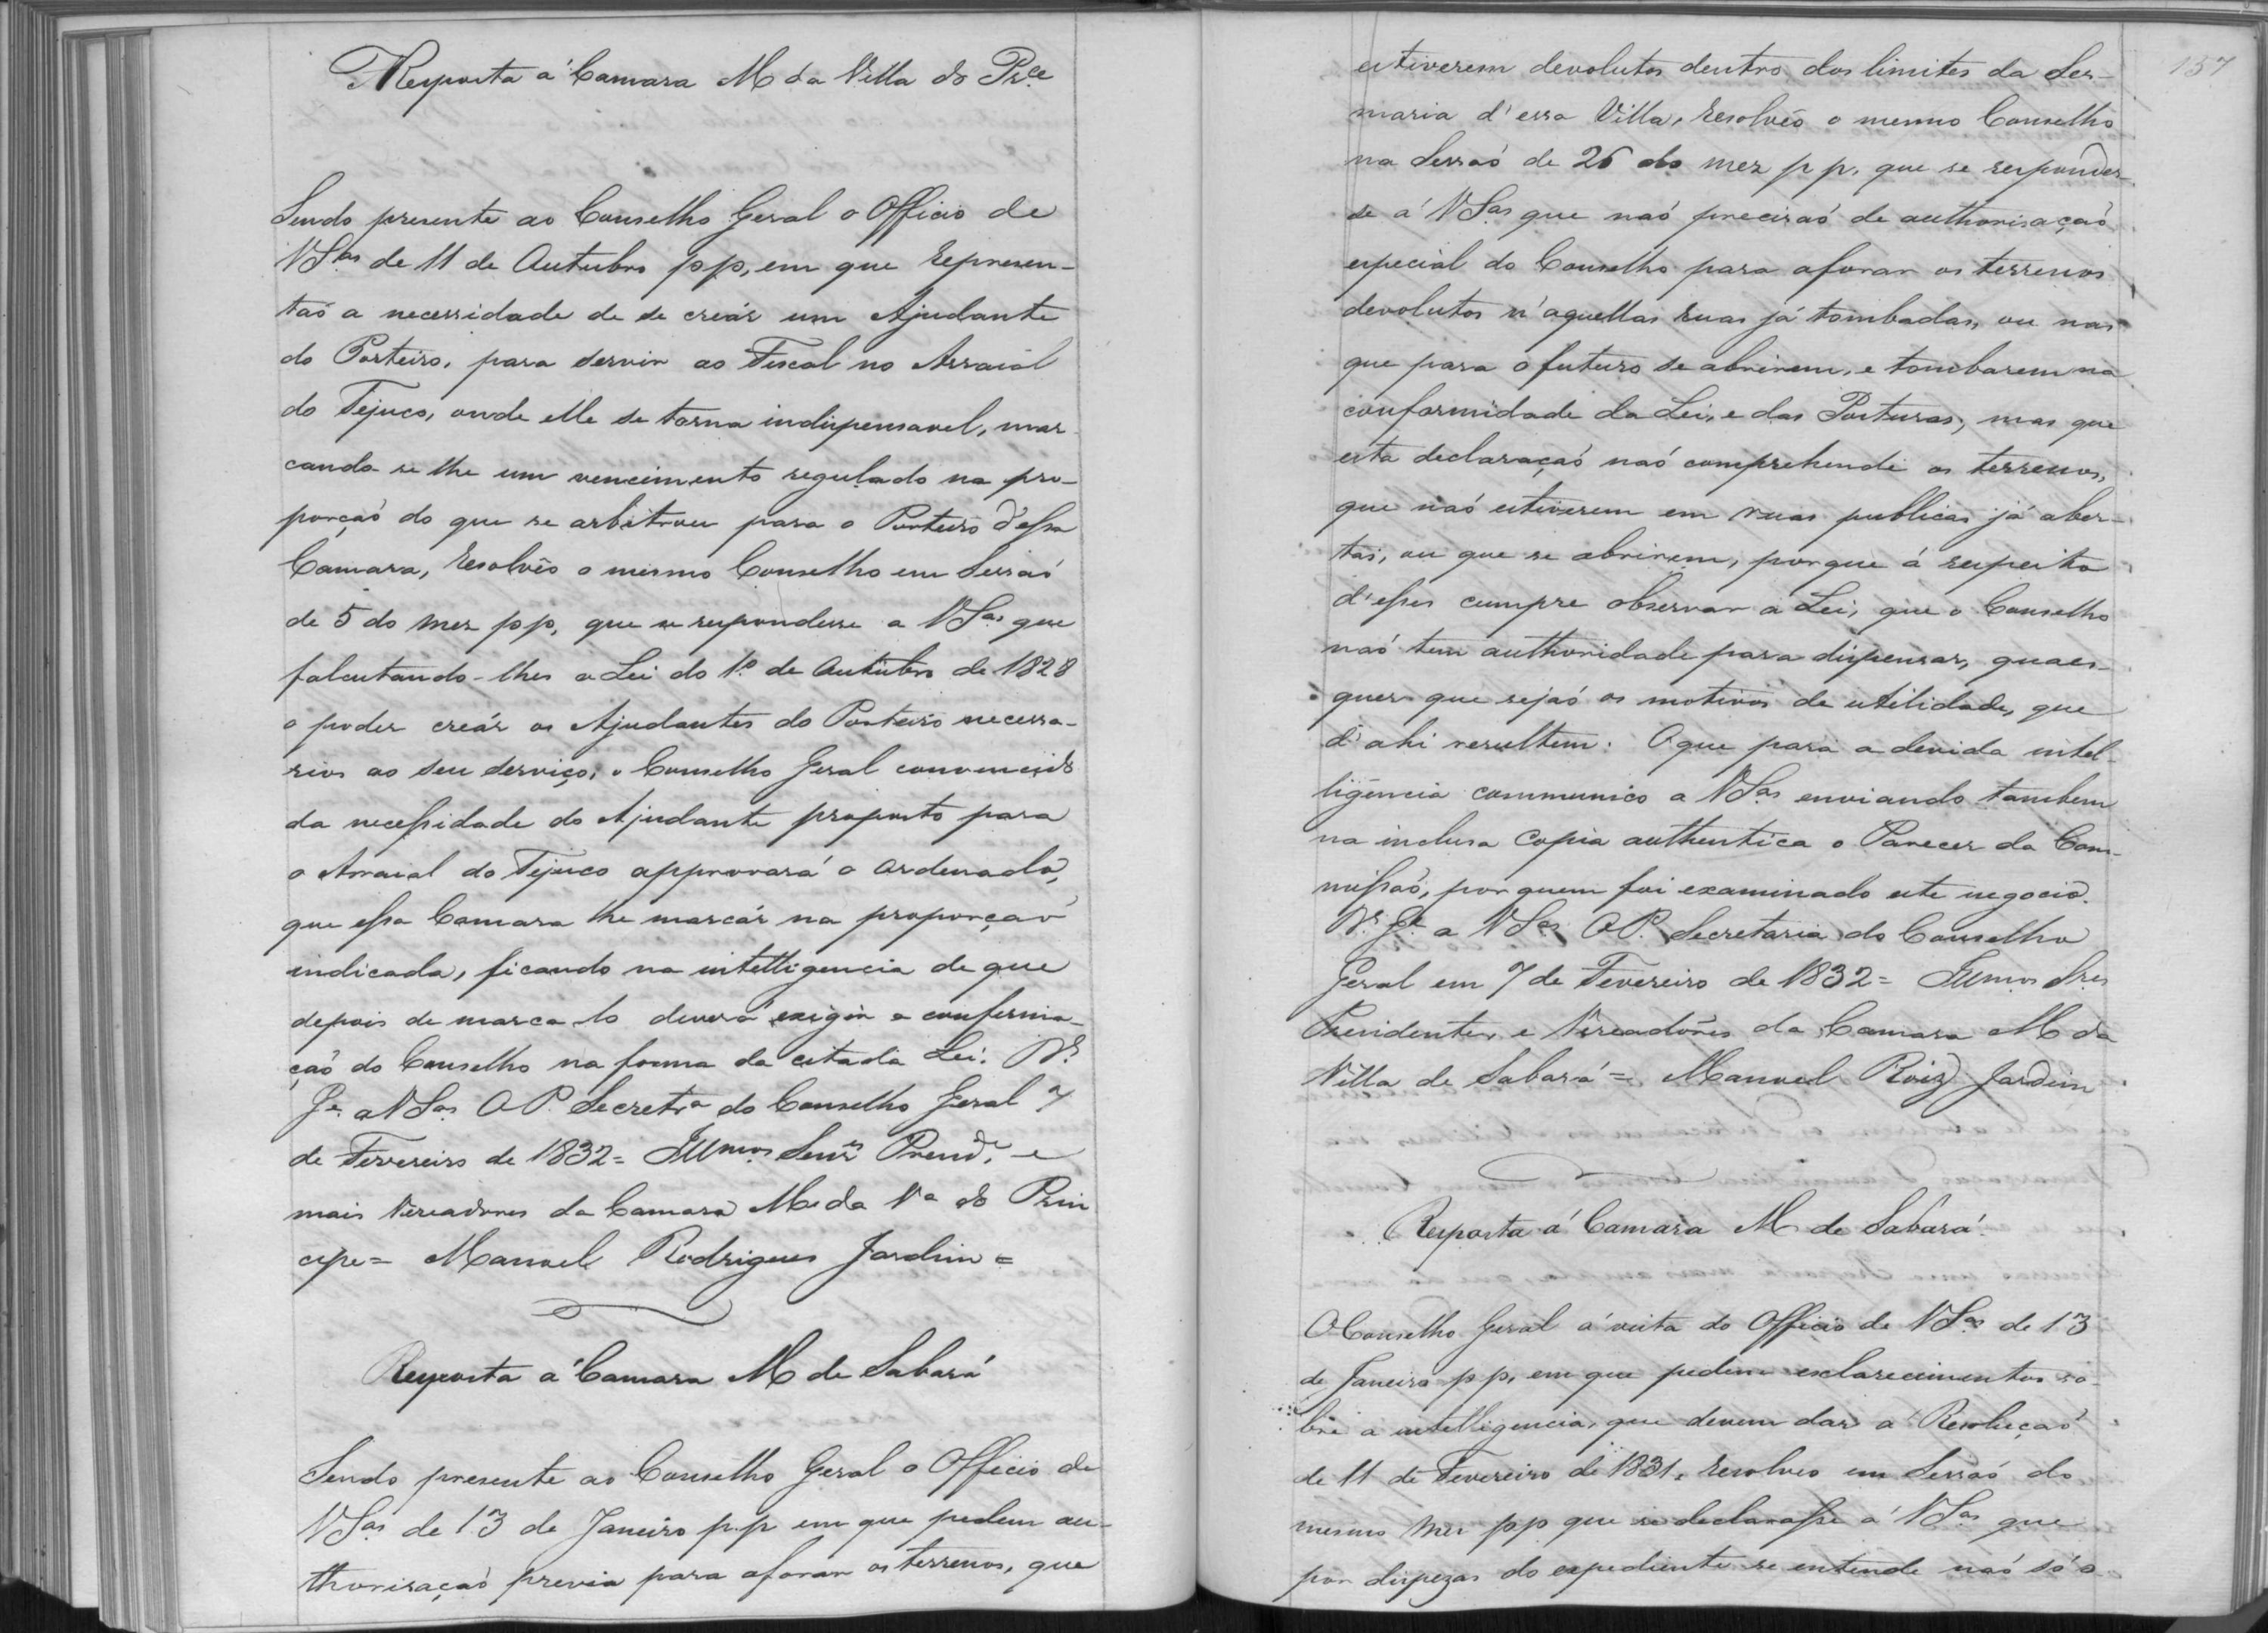 Resposta á Camara M da Villa do Prce
Sendo presente ao Conselho Geral o Officio de
VSas de 11 de Outubro pp, em que represen-
taõ a necessidade de se creár um Ajudante
do Porteiro, para servir ao Fiscal no Arraial
do Tejuco, onde elle se torna indispensavel, mar
cando-se lhe um vencimento regulado na pro-
porçaõ do que se arbitrou para o Porteiro d'essa
Camara, resolvêo o mesmo Conselho em Sessaõ
de 5 do mez pp, que se respondesse a VSas que
falcutando-lhes a Lei do 1º de Outubro de 1828
o poder creár os Ajudantes do Porteiro necessa-
rios ao seu serviço, o Conselho Geral convencido
da necessidade do Ajudante proposto para
o Arraial do Tejuco approvará o ordenado,
que essa Camara lhe marcár na proporçaõ
indicada, ficando na intelligencia de que
depois de marca-lo deverá exigir a conferma-
çaõ do Conselho na forma da citada Lei. Ds
Ge a VSas O P. Secretra do Conselho Geral 7
de Fevereiro de 1832= Illmos Senrs Presde e
mais Vereadores da Camara M da Va do Prin
cipe= Manoel Rodrigues Jardim=
Resposta á Camara M de Sabará
Sendo presente ao Conselho Geral o Officio de
VSas de 13 de Janeiro p.p em que pedem au-
thorisaçaõ previa para aforar os terrenos, que
157
estiverem devolutos dentro dos limites da Ses-
maria d'essa Villa, resolvêo o mesmo Conselho
na Sessaõ de 26 do mez pp, que se respondes-
se á VSas que naõ precisaõ de authorisaçaõ
especial do Conselho para aforar os terrenos
devolutos n'aquellas ruas já tombadas, ou nas
que para o futuro se abrirem, e tombarem na
conformidade da Lei, e das Posturas, mas que
esta declaraçaõ naõ comprehende os terrenos,
que naõ estiverem em ruas publicas já aber-
tas, ou que se abrirem, porque á respeito
d'esses cumpre observar a Lei, que o Conselho
naõ tem authoridade para dispensar, quaes-
quer que sejaõ os motivos de utilidade, que
d'ahi resultem: O que para a devida intel-
ligencia communico a VSas enviando tambem
na inclusa copia authentica o Parecer da Com-
missaõ, por quem foi examinado este negocio.
Ds Ge a VSas O P. Secretaria do Conselho
Geral em 7 de Fevereiro de 1832= Illmos Sres
Presidente, e Vereadores da Camara M da
Villa de Sabará= Manoel Roiz Jardim
Resposta á Camara M de Sabará
O Conselho Geral á vista do Officio de VSas de 13
de Janeiro pp, em que pedem esclarecimentos so-
bre a intelligencia, que devem dar a Resoluçaõ
de 11 de Fevereiro de 1831, resolveo em Sessaõ do
mesmo mez pp que se declarasse á VSas que
por despezas do expediente se entende naõ só o